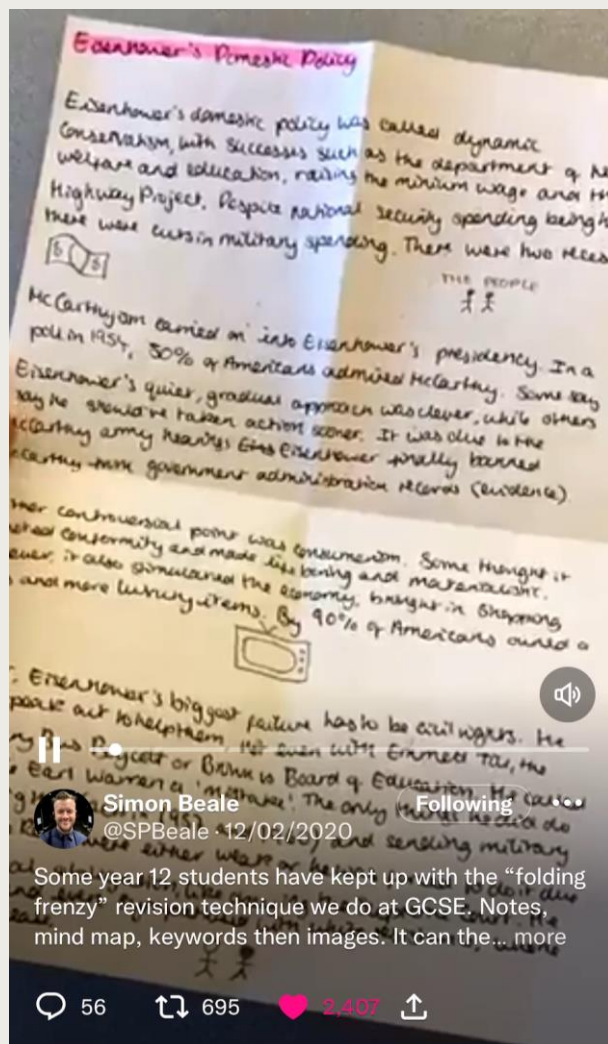 Eisenhower's Domestic Policy
Eisenhower's domestic policy was called dynamic
Conservatism, with successes such as the department of he
welfare and education, raising the minimum wage and th
Highway Project. Despite national security spending being h
there were cuts in military spending. There were two recess
THE PEOPLE
McCarthyism carried on into Eisenhower's presidency. In a
poll in 1954, 50% of Americans admired McCarthy. Some say
Eisenhower's quiet, gradual approach was clever, while others
say he should've taken action sooner. It was due to the
ccarthy army hearings Eisenhower finally banned
ccarthy from government administration records (evidence)
ther controversial point was consumerism. Some thought it
conformity and made life boring and materialistic.
ever, it also stimulated the economy, brought in shopping
and more luxury items. By 90% of Americans owned a
Eisenhower's biggest failure has to be civil rights. He
speak out to help them. Not even with Emmett Till, the
ry Bus Boycott or Brown vs Board of Education. He called
Earl Warren a 'mistake'. The only things he did do
and sending military
were either weak or
Simon Beale
Following
@SPBeale · 12/02/2020
Some year 12 students have kept up with the “folding
frenzy” revision technique we do at GCSE. Notes,
mind map, keywords then images. It can the... more
56 695 2,407